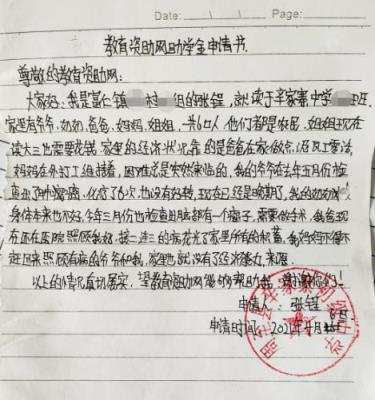 Date: Page:
教育资助网助学金申请书
尊敬的教育资助网:
大家好:我是富仁镇 村 组的张锃,就读于车家寨中学 班.
家里有爷爷、奶奶、爸爸、妈妈、姐姐,共6口人,他们都是农民,姐姐现在
读大三也需要花钱,家里的经济状况靠的是爸爸在家做点
妈妈在外打工维持着,困难总是突然来临的,我的爷爷在去年五月份检
查出了 ,化疗了6次,也没有好转,现在已经是晚期了,我的奶奶
身体本来也不好,今年三月份也检查出脑部有一个瘤子,需要做手术,我爸现
在还在医院照顾奶奶,接二连三的病花光了家里所有的积蓄,我妈妈不得不
赶回来照顾有病的爷爷和我,家里也就没有了经济能力来源.
以上的情况真切属实,望教育资助网能够帮助我,谢谢你们!
申请人:张锃
申请时间:2021年4月8日